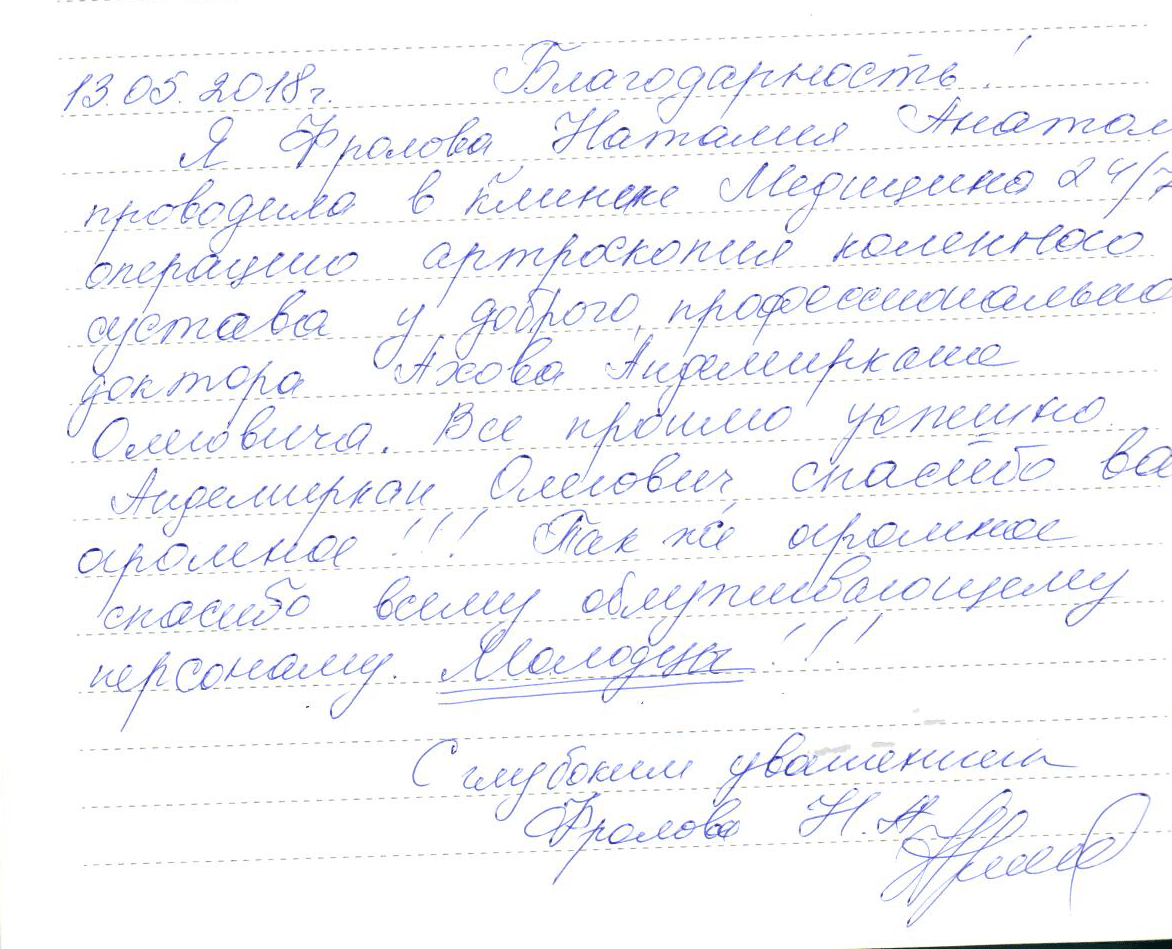 13.05.2018г. Благодарность!
Я Фролова Наталия Анатол
проводила в клинике Медицина 24/7
операцию артроскопия коленного
сустава у доброго, профессионально
доктора Ахова Андемиркана
Олеговича. Все прошло успешно.
Андемиркан Олегович, спасибо ва
огромное!!! Так же огромное
спасибо всему обслуживающему
персоналу. Молодцы!!!
С глубоким уважением
Фролова Н.А